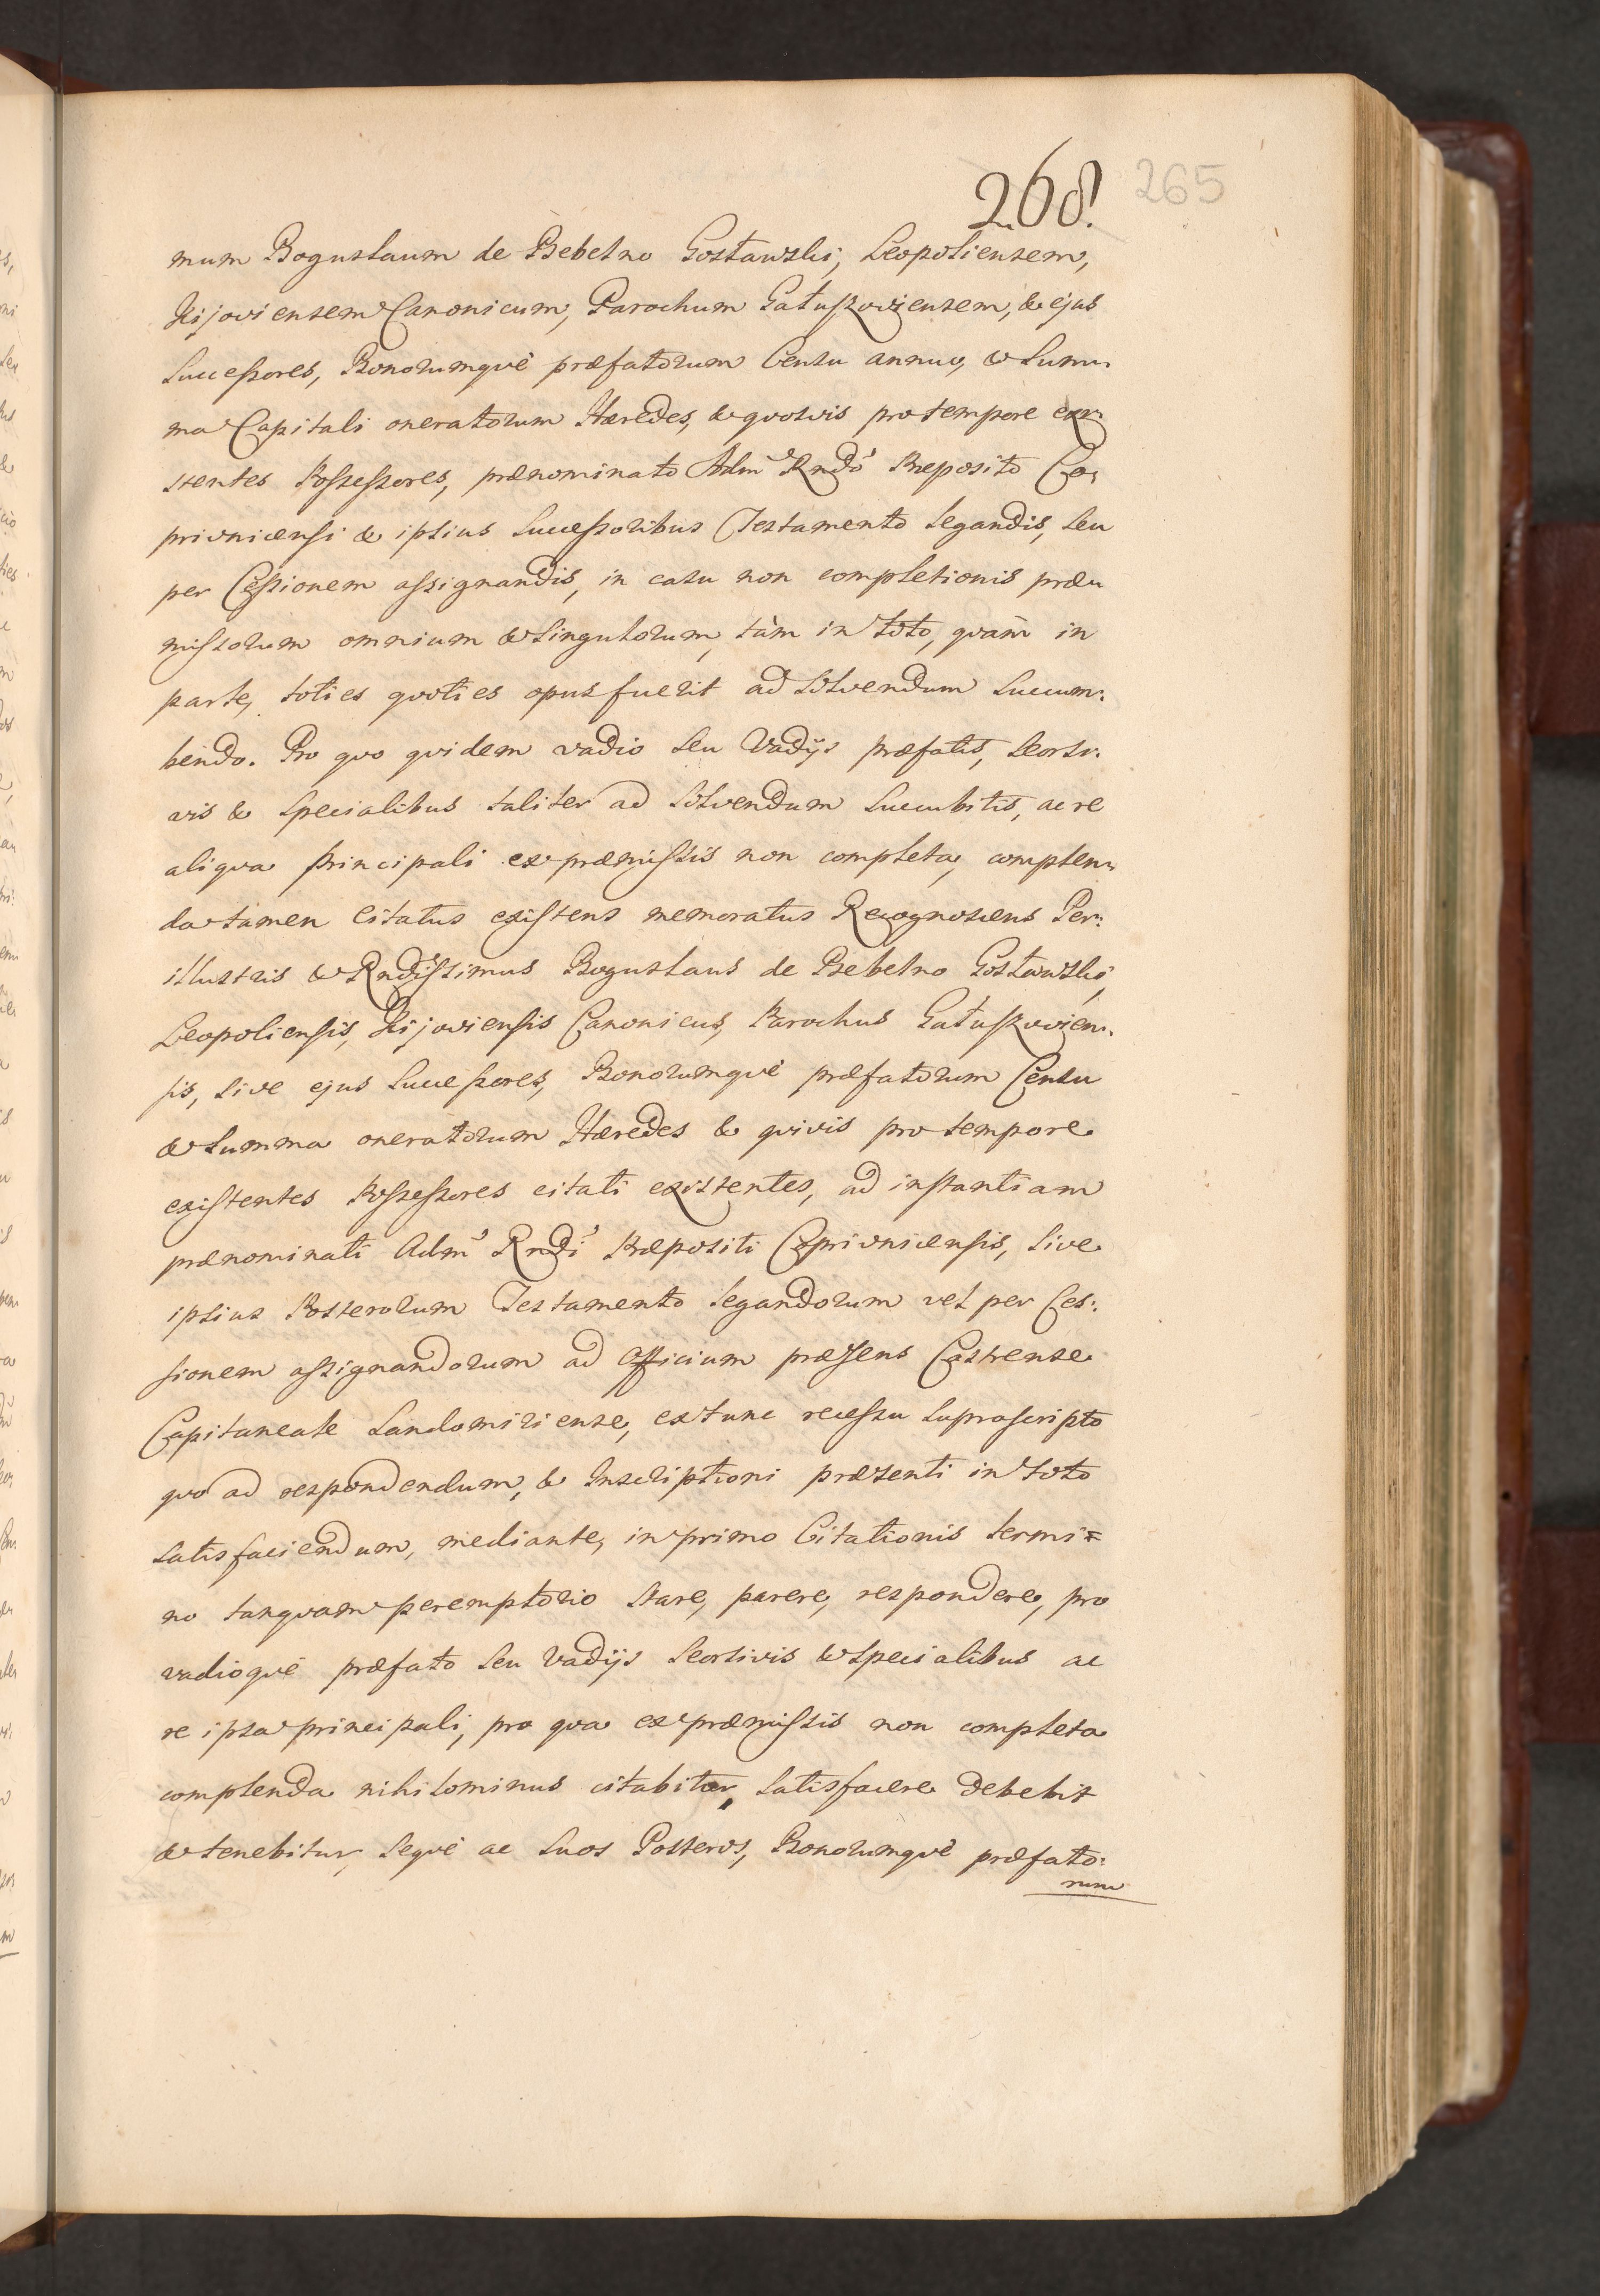 268.
265
mum Boguslaum de Bebelno Gosławski, Leopoliensem,
Kijoviensem Canonicum, Parochum Gałuszoviensem, & ejus
Successores, Bonorumquè præfatorum Censu annuo, & Sum:
ma Capitali oneratorum Hæredes, & quosvis pro tempore exi:
stentes Possessores, prænominato Adm Rndo Præposito Co:
privnicensi & ipsius Successoribus Testamento legandis, seu
per Cessionem assignandis, in casu non completionis præ
missorum omnium & singulorum, tàm in toto, quàm in
parte, toties quoties opus fuerit ad solvendum succum:
bendo. Pro quo quidem vadio seu Vadijs præfatis, seorsi:
vis & specialibus taliter ad solvendum succubitis, ac re
aliqua principali ex præmissis non completa, complen:
da tamen citatus existens memoratus Recognoscens Per:
illustris & Rndissimus Boguslaus de Bebelno Gosławski,
Leopoliensis, Kijoviensis Canonicus, Parochus Gałuszovien:
sis, sive ejus Successores, Bonorumquè præfatorum Censu
& Summa oneratorum Hæredes & quivis pro tempore
existentes Possessores citati existentes, ad instantiam
prænominati Adm Rndi Præpositi Coprivnicensis, sive
ipsius Posterorum Testamento legandorum vel per Ces:
sionem assignandorum ad Officium præsens Castrense
Capitaneale Sandomiriense, extunc recessu suprascripto
quo ad respondendum, & Inscriptioni præsenti in toto
satisfaciendum, mediante, in primo Citationis termi=
no tanquam peremptorio stare, parere, respondere, pro
vadioquè præfato seu Vadijs seorsivis & specialibus ac
re ipsa principali, pro qua ex præmissis non completa
complenda nihilominus citabitur, satisfacere debebit
& tenebitur, sequè ac suos Posteros, Bonorumquè præfato:
rum